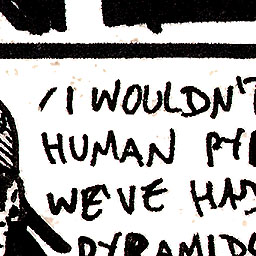 I WOULDN'T
HUMAN PY
WE'VE HAD
PYRAMIDS